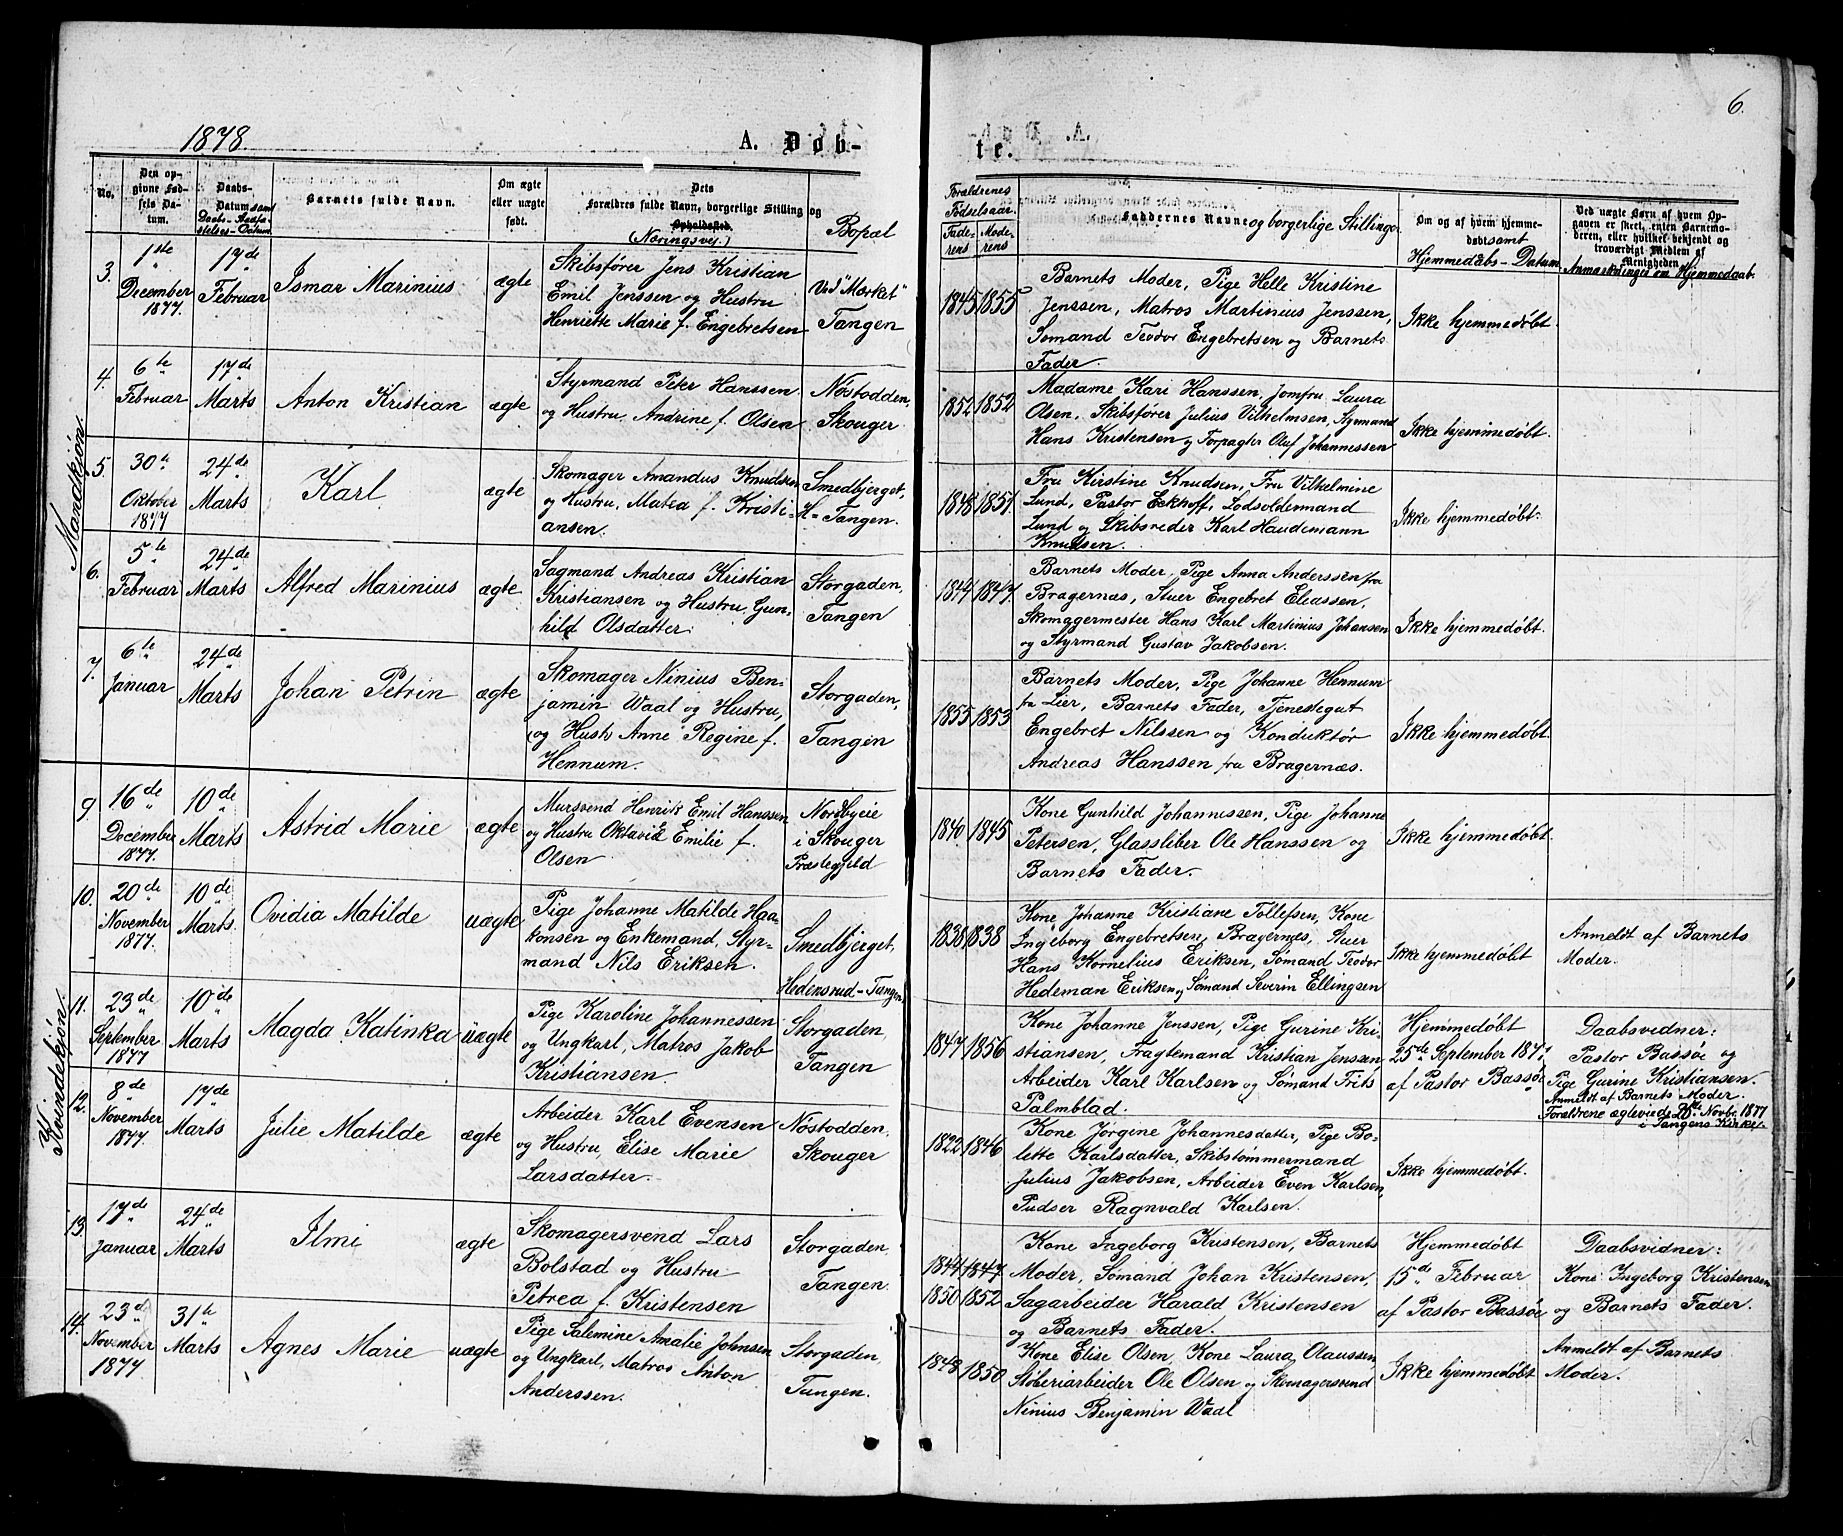 1878.
A. Døb-
No.
Den op-
givne Fød-
sels Da-
tum.
Daabs-
Datum samt
Daabs-Aadfæ-
stelses-Datum.
Barnets fulde Navn.
Om ægte
eller uægte
født.
Dets
Forældres fulde Navn, borgerlige Stilling og
Opholdssted.
(Næringsvej.)
Bopæl
Mandkjøn.
3.
1ste
December
1877.
17de
Februar
Ismar Marinius
ægte
Skibsfører Jens Kristian
Emil Jenssen og Hustru
Henriette Marie f. Engebretsen
Ved "Mærket"
Tangen
4.
6te
Februar
17de
Marts
Anton Kristian
ægte
Styrmand Peter Hanssen
og Hustru Andrine f. Olsen
Nøstodden,
Skouger
5
30te
Oktober
1877
24de
Marts
Karl
ægte
Skomager Amandus Knudsen
og Hustru, Matea f. Kristi-
ansen.
Smedbjerget,
H= Tangen.
6.
5te
Februar
24de
Marts
Alfred Marinius
ægte
Sagmand Andreas Kristian
Kristiansen og Hustru, Gun-
hild Olsdatter.
Storgaden,
Tangen
7.
6te
Januar
24de
Marts
Johan Petrin
ægte
Skomager Ninius Ben-
jamin Waal og Hustru,
(og Hush Anne Regine f.
Hennum.
Storgaden,
Tangen
Kvindekjøn.
9
16de
December
1877.
10de
Marts
Astrid Marie
ægte
Mursvend Henrik Emil Hanssen
og Hustru Oktavia Emilie f.
Olsen
Nordbyeie
i Skouger
Præstegjeld
10.
20de
November
1877.
10de
Marts.
Ovidia Matilde
uægte
Pige Johanne Matilde Haa-
konsen og Enkemand, Styr-
mand Nils Eriksen.
Smedbjerget,
Hedensrud-Tangen
11.
23de
September
1877
10de
Marts
Magda Katinka
uægte
Pige Karoline Johannessen
og Ungkarl, Matros Jakob
Kristiansen.
Storgaden,
Tangen
12.
8de
November
1877.
17de
Marts
Julie Matilde
ægte
Arbeider Karl Evensen
og Hustru, Elise Marie
Larsdatter.
Nøstodden,
Skouger
13.
17de
Januar
24de
Marts
Ilmi
ægte
Skomagersvend Lars
Bolstad og Hustru
Petrea f. Kristensen
Storgaden,
Tangen.
14.
23de
November
1877
31te
Marts
Agnes Marie
uægte
Pige Salemine Amalie Johnsen
og Ungkarl, Matros Anton
Anderssen.
Storgaden,
Tangen.
6.
te.
Forældrenes
Fødselsaar.
Fade-
rens
Mode-
rens
Faddernes Navne og borgerlige Stilling.
Om og af hvem hjemme-
døbt samt
Hjemmedåbs-Datum
Ved uægte Børn af hvem Op-
gaven er skeet, enten Barnemo-
deren, eller hvilket bekjendt og
troværdigt Medlem af
Menigheden
Anmærkninger om Hjemmedaab.
1845
1855
Barnets Moder, Pige Helle Kristine
Jenssen, Matros Martinius Jenssen,
Sømand Teodor Engebretsen og Barnets
Fader.
Ikke hjemmedøbt.
1852
1852
Madame Kari Hanssen, Jomfru Laura
Olsen, Skibsfører Julius Vilhelmsen, Styrmand
Hans Kristensen og Forpagter Oluf Johannessen
Ikke hjemmedøbt.
1848
1851.
Fru Kirstine Knudsen, Fru Vilhelmine
Lund, Pastor Eckhoff, Lodsoldermand
Lund og Skibsreder Karl Haudemann
Knudsen.
Ikke hjemmedøbt.
1844
1847.
Barnets Moder, Pige Anna Anderssen fra
Bragernæs, Stuer Engebret Eliassen,
Skomagermester Hans Karl Martinius Johansen
og Styrmand Gustav Jakobsen.
Ikke hjemmedøbt.
1855
1853
Barnets Moder, Pige Johanne Hennum
fra Lier, Barnets Fader, Tjenestegut
Engebret Nilssen og Konduktør
Andreas Hanssen fra Bragernæs.
Ikke hjemmedøbt.
1840.
1845
Kone Gunhild Johannessen, Pige Johanne
Petersen, Glassliber Ole Hanssen og
Barnets Fader.
Ikke hjemmedøbt.
1838
1838
Kone Johanne Kristiane Tollefsen, Kone
Ingeborg Engebretsen, Bragernes, Stuer
Hans Kornelius Eriksen, Sømand Teodor
Hedeman Eriksen og Sømand Severin Ellingsen
Ikke hjemmedøbt
Anmeldt af Barnets
Moder.
1847
1856
Kone Johanne Jenssen, Pige Gurine Kri-
stiansen, Fragtemand Kristian Jenssen
Arbeider Karl Karlsen og Sømand Frits
Palmblad.
Hjemmedøbt
25de September 1877
af Pastor Bassøe
Daabsvidner:
Pastor Bassøe og
Pige Gurine Kristiansen.
Anmeldt af Barnets Moder.
Forældrene ægteviede 25de Novbr. 1877
i Tangens Kirke.
1822
1846
Kone Jørgine Johannesdatter, Pige Bo-
lette Karlsdatter, Skibstømmermand
Julius Jakobsen, Arbeider Even Karlsen,
Pudser Ragnvald Karlsen.
Ikke hjemmedøbt.
1844
1847
1850
1852
Kone Ingeborg Kristensen, Barnets
Moder, Sømand Johan Kristensen,
Sagarbeider Harald Kristensen
og Barnets Fader.
Hjemmedøbt
15de Februar
af Pastor Bassøe
Daabsvidner:
Kone Ingeborg Kristensen
og Barnets Fader.
1848
1850
Kone Elise Olsen, Kone Laura Olaussen
Støberiarbeider Ole Olsen og Skomagersvend
Ninius Benjamin Waal
Ikke hjemmedøbt
Anmeldt af Barnets
Moder.